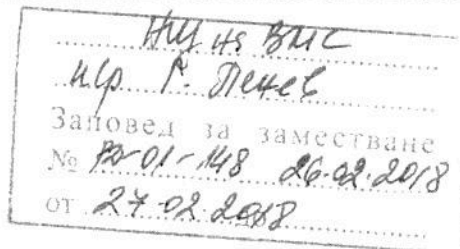 НЦ на ВМС
и.ф. Г. Пенев
Заповед за заместване
№ РД-01-148 26.02.2018
от 27.02.2018